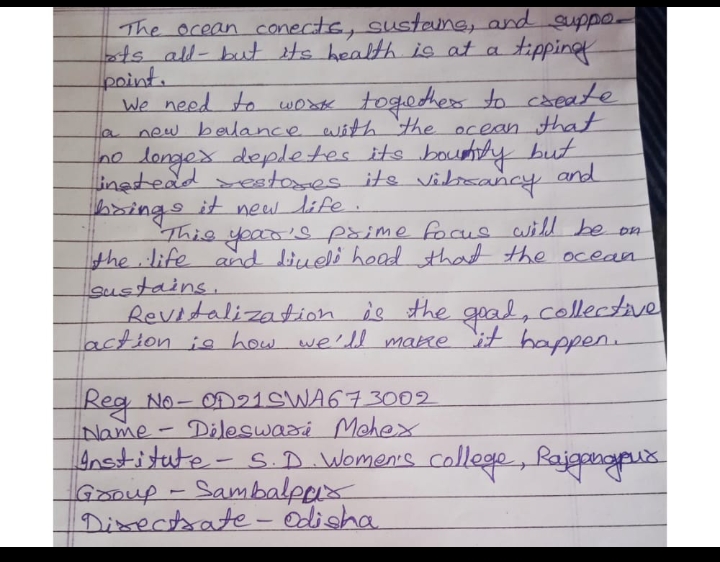 The ocean conects, sustains, and suppo-
rts all- but its health is at a tipping
point.
We need to work together to create
a new balance with the ocean that
no longer depletes its bounty but
instead restores its vibrancy and
brings it new life.
This year's prime focus will be on
the life and liveli hood that the ocean
sustains.
Revitalization is the goal, collective
action is how we'll make it happen.
Reg No- OD21SWA673002
Name - Dileswari Meher
Institute - S.D. Women's College, Rajgangpur
Group - Sambalpur
Directrate - Odisha